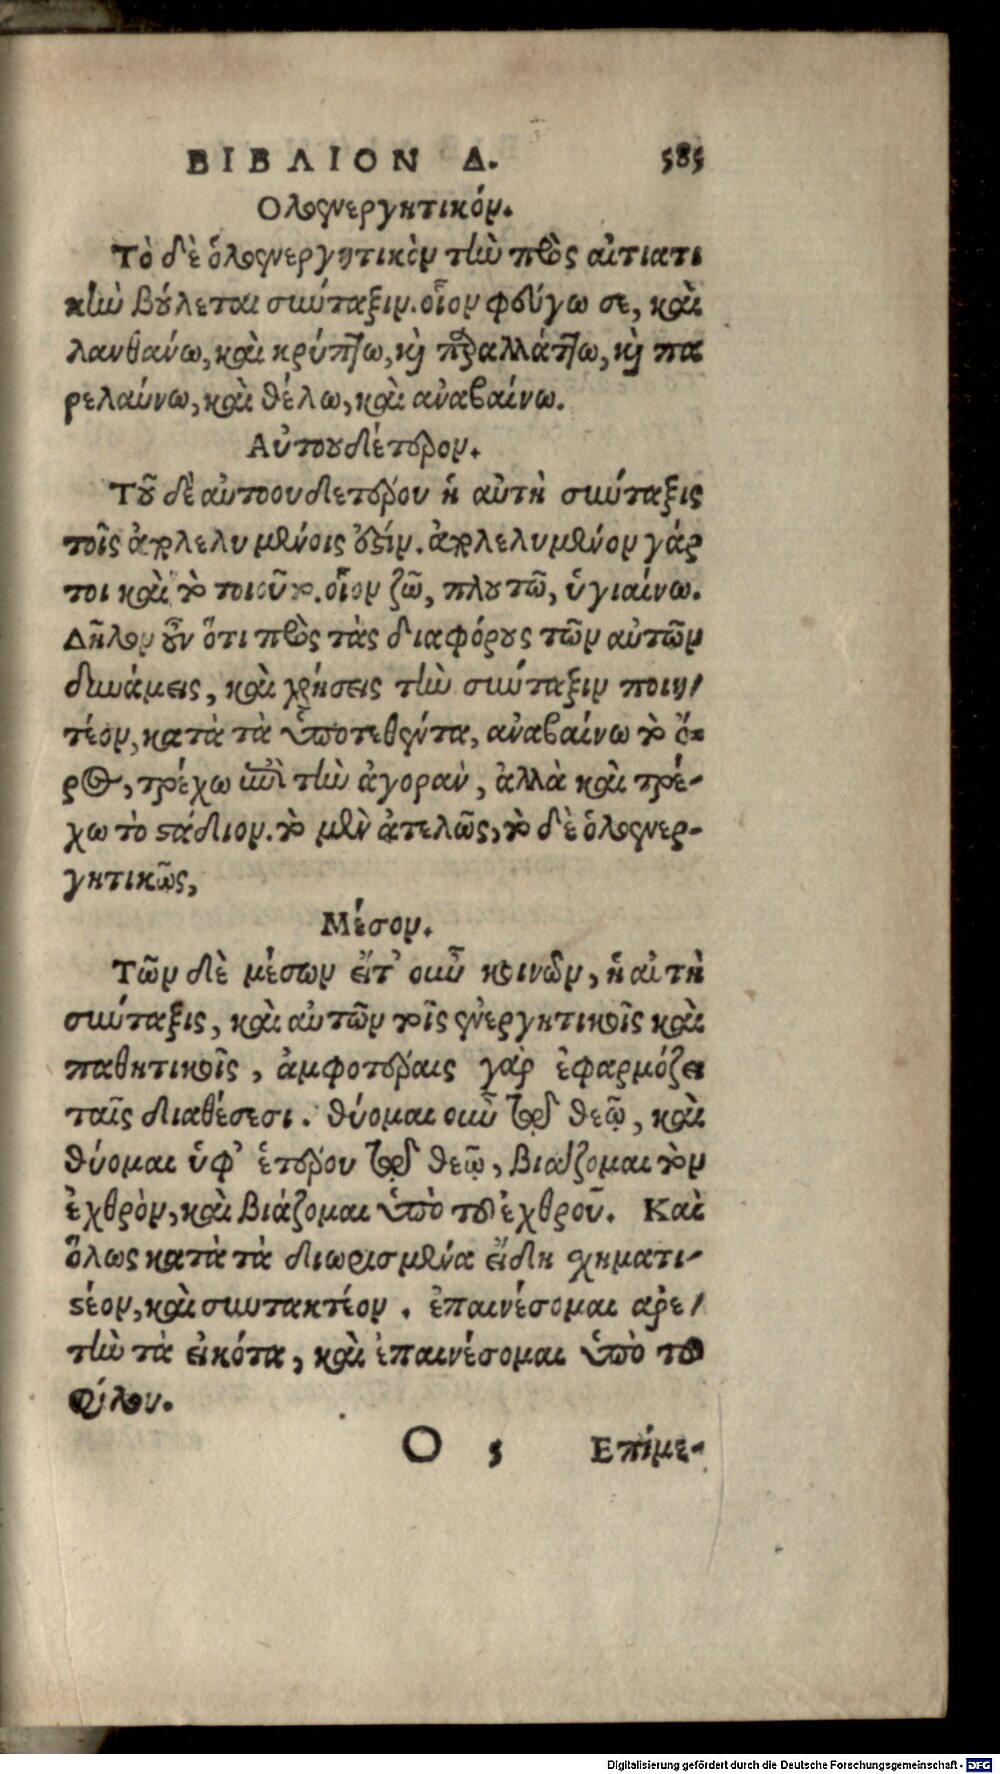 ΒΙΒΛΙΟΝ Δ. 585
Ολοενεργητικόν.
Τὸ δὲ ὁλοενεργητικὸν τὴν πρὸς αἰτιατι
κὴν βούλεται σύνταξιν. οἷον φεύγω σε, καὶ
λανθάνω, καὶ κρύπτω, καὶ παραλλάττω, καὶ πα
ρελαύνω, καὶ θέλω, καὶ ἀναβαίνω.
Αὐτουδέτερον.
Τοῦ δὲ αὐτοουδετέρου ἡ αὐτὴ σύνταξις
τοῖς ἀπολελυμένοις ἐστίν. ἀπολελυμένον γάρ
τοι καὶ τὸ τοιοῦτο. οἷον ζῶ, πλουτῶ, ὑγιαίνω.
Δῆλον οὖν ὅτι πρὸς τὰς διαφόρους τῶν αὐτῶν
δυνάμεις, καὶ χρήσεις τὴν σύνταξιν ποιη-
τέον, κατὰ τὰ ὑποτεθέντα, ἀναβαίνω τὸ ὄ-
ρος, τρέχω ἐπὶ τὴν ἀγορὰν, ἀλλὰ καὶ τρέ-
χω τὸ στάδιον. τὸ μὲν ἀτελῶς, τὸ δὲ ὁλοενερ-
γητικῶς,
Μέσον.
Τῶν δὲ μέσων εἴτ' οὖν κοινῶν, ἡ αὐτὴ
σύνταξις, καὶ αὐτῶν τοῖς ἐνεργητικοῖς καὶ
παθητικοῖς, ἀμφοτέραις γὰρ ἐφαρμόζει
ταῖς διαθέσεσι. θύομαι οὖν τῷ θεῷ, καὶ
θύομαι ὑφ' ἑτέρου τῷ θεῷ, βιάζομαι τὸν
ἐχθρὸν, καὶ βιάζομαι ὑπὸ τοῦ ἐχθροῦ. Καὶ
ὅλως κατὰ τὰ διωρισμένα εἴδη σχηματι-
στέον, καὶ συντακτέον. ἐπαινέσομαι ἀρε-
τὴν τὰ εἰκότα, καὶ ἐπαινέσομαι ὑπὸ τοῦ
φίλου.
O 5 Επίμε-
Digitalisierung gefördert durch die Deutsche Forschungsgemeinschaft - DFG